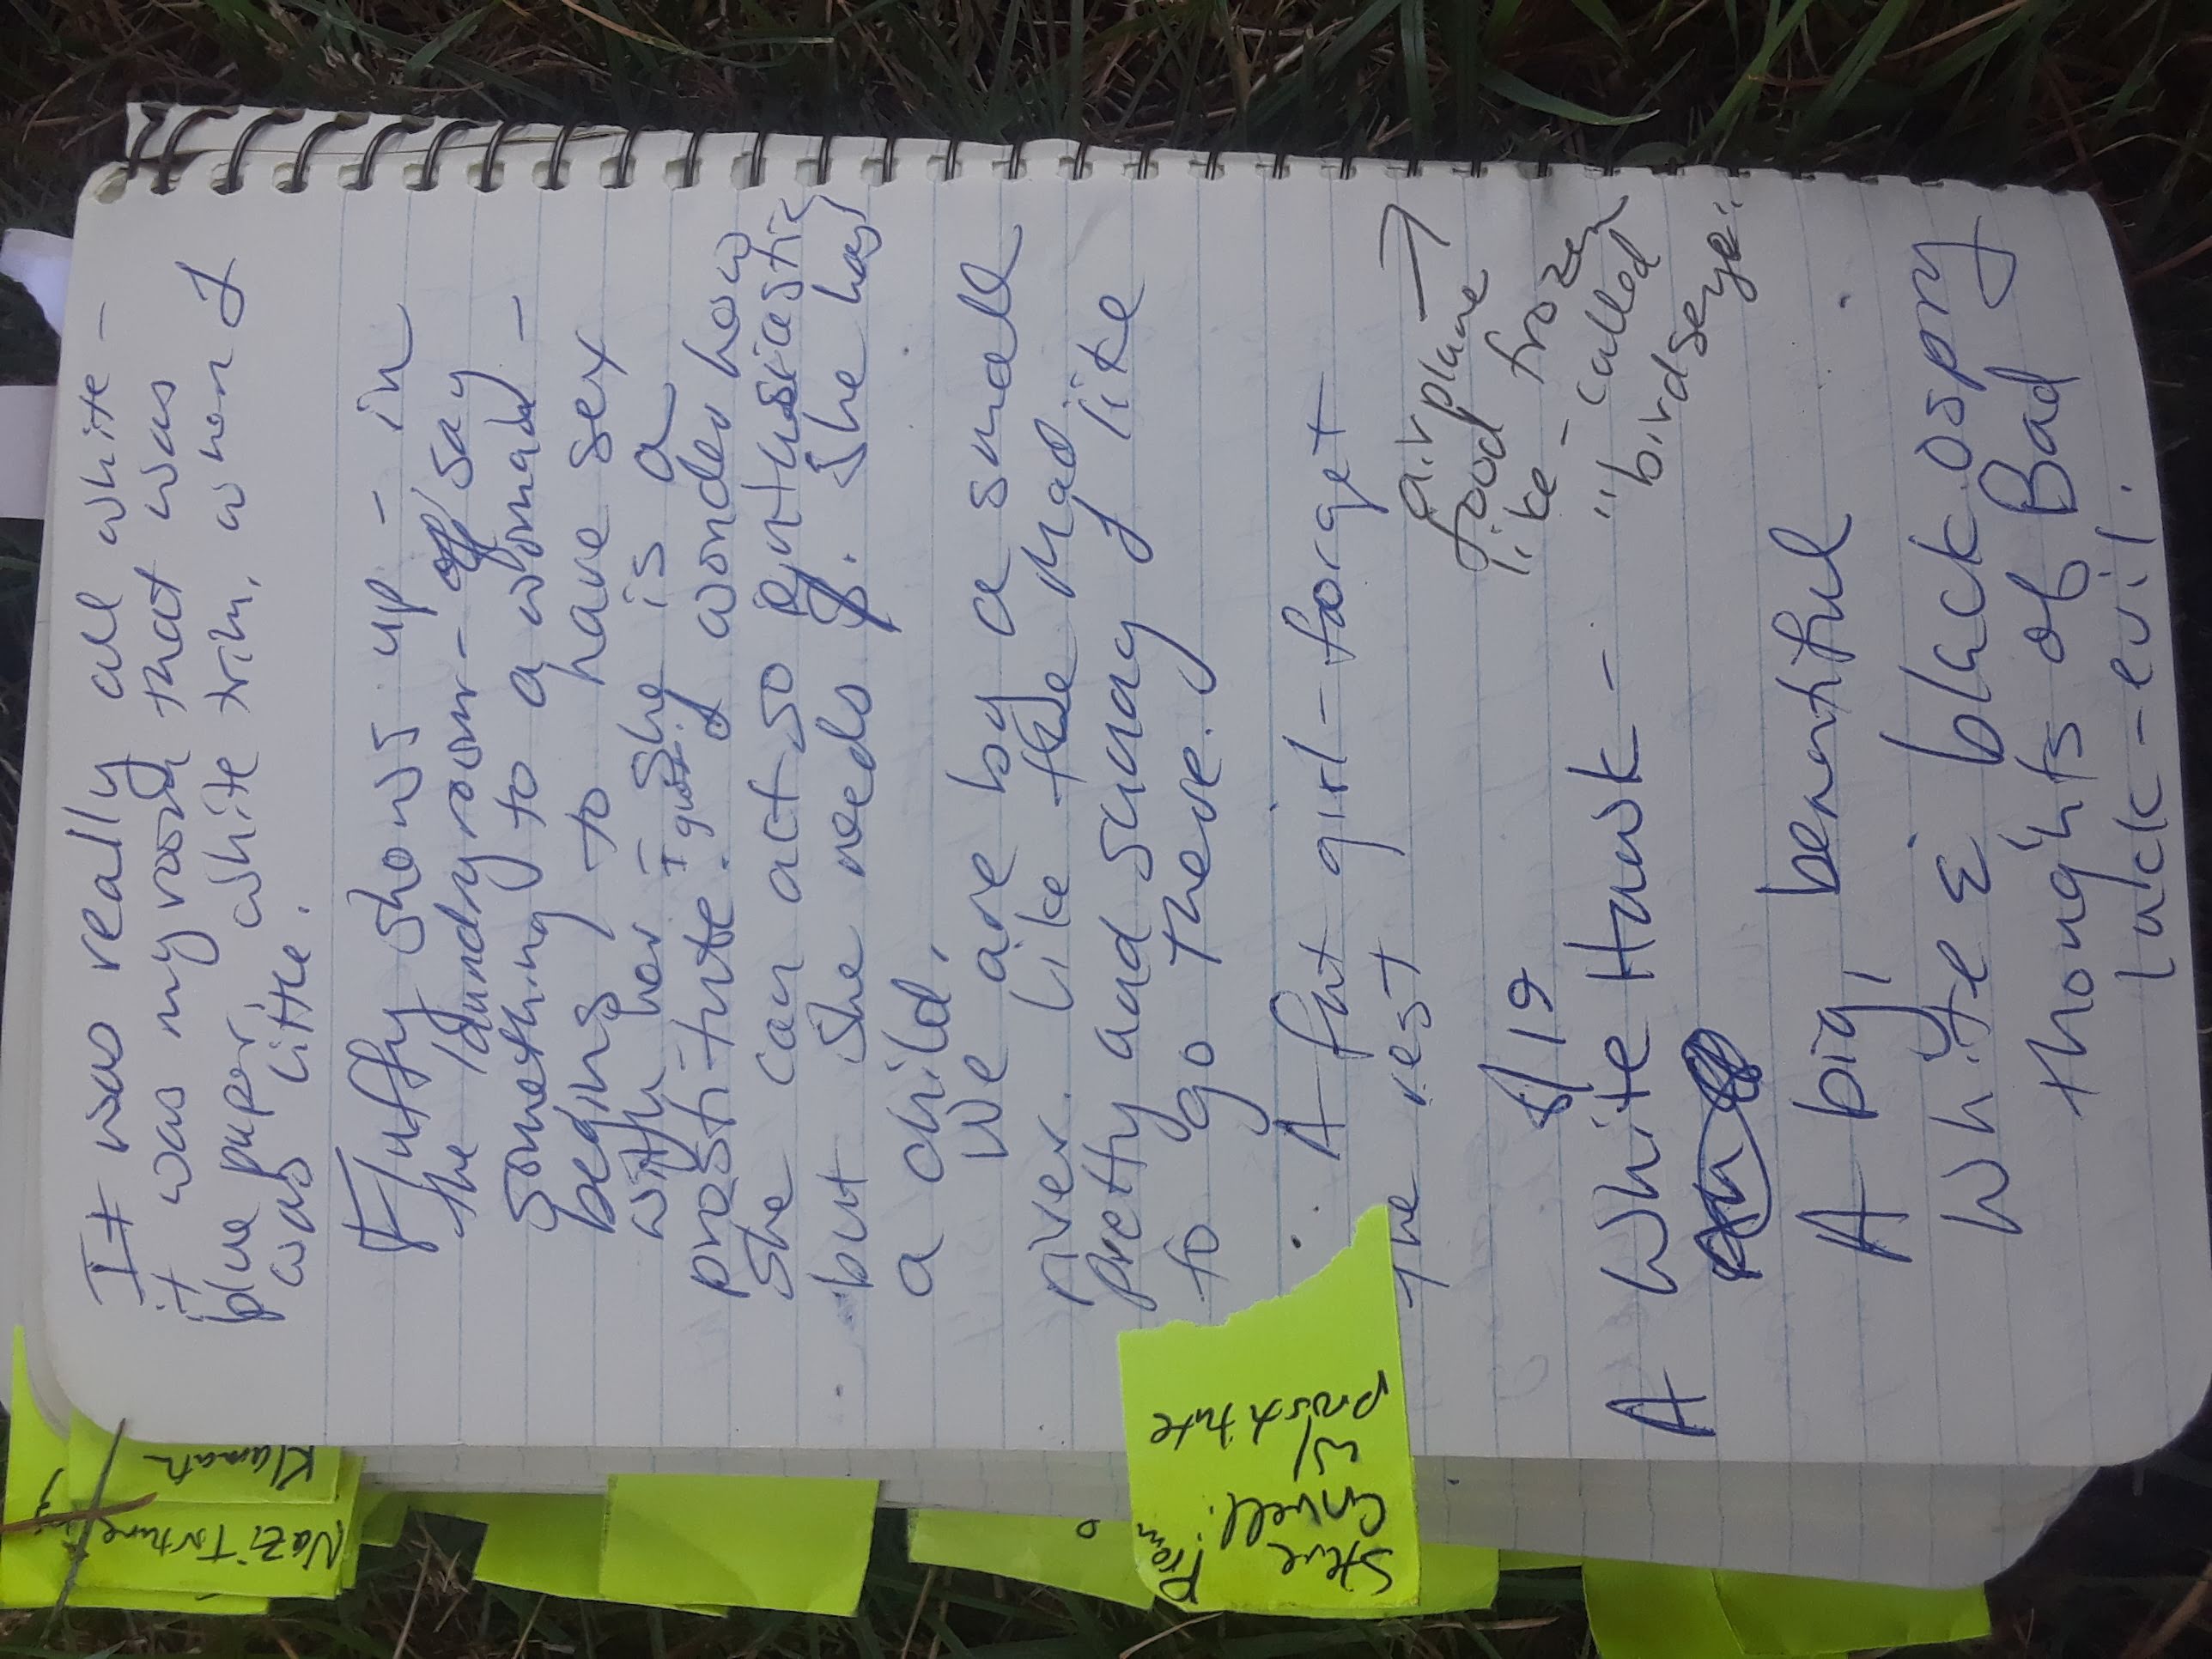 It was really all white -
it was my room that was
blue paper, white trim, when I
was little.
Fluffy shows up - in
the laundryroom - say
something to a woman -
begins to have sex
with her - She is a
I guess.
prostitute. I wonder how
she can act so enthusiastic
but she needs $. She has
a child.
We are by a small
river. Like the Mad
pretty and sunny I like
to go there.
A fat girl - forget
the rest
airplane
food
like frozen
like - called
"birdseye"
8/19
A White Hawk -
A big, beautiful
White & black ospry
thoughts of Bad
luck - evil.
Steve
Covell
w/
prostitute
Klamath
Nazi Torture